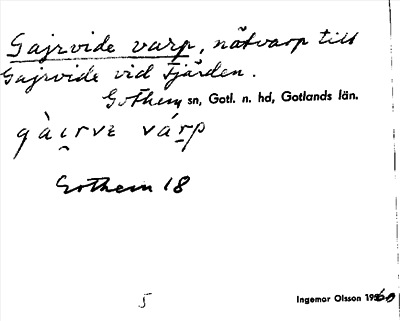 Gajrvide varp, nätvarp till
Gajrvide vid Fjärden.
Gothem sn, Gotl. n. hd, Gotlands län.
gàɩrvε várp
Gothem 18
5
Ingemar Olsson 1960